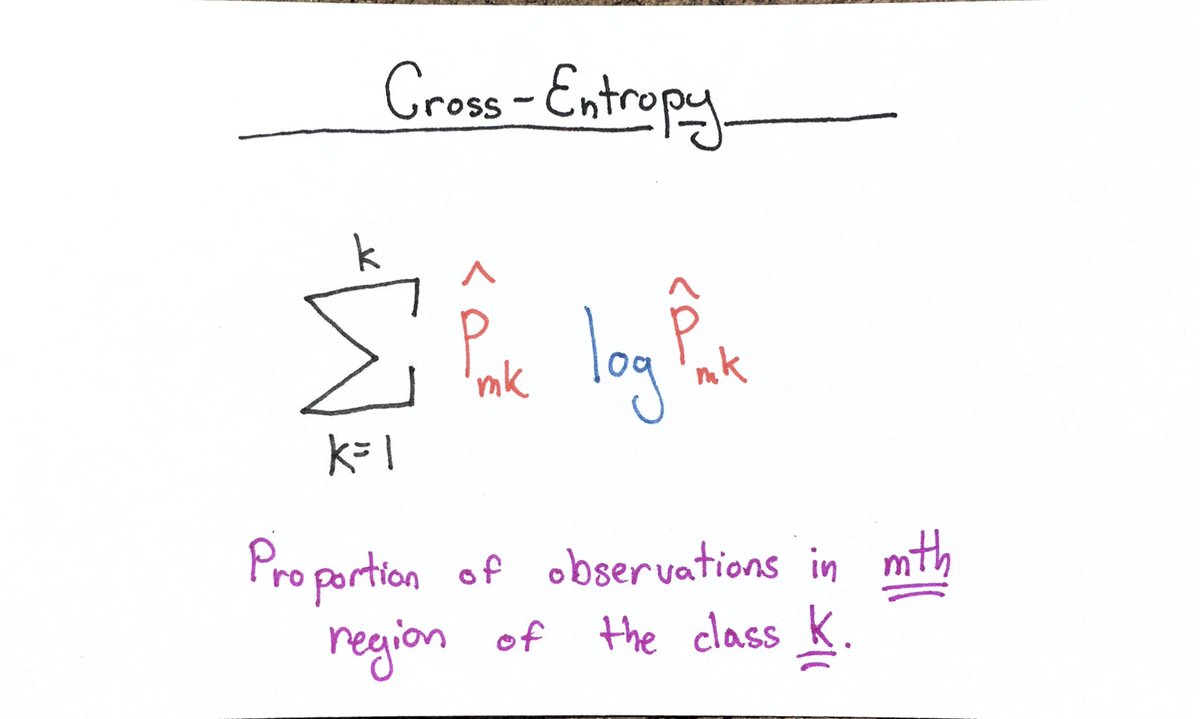 Cross-Entropy
k
∑ P̂mk log P̂mk
k=1
Proportion of observations in mth
region of the class k.